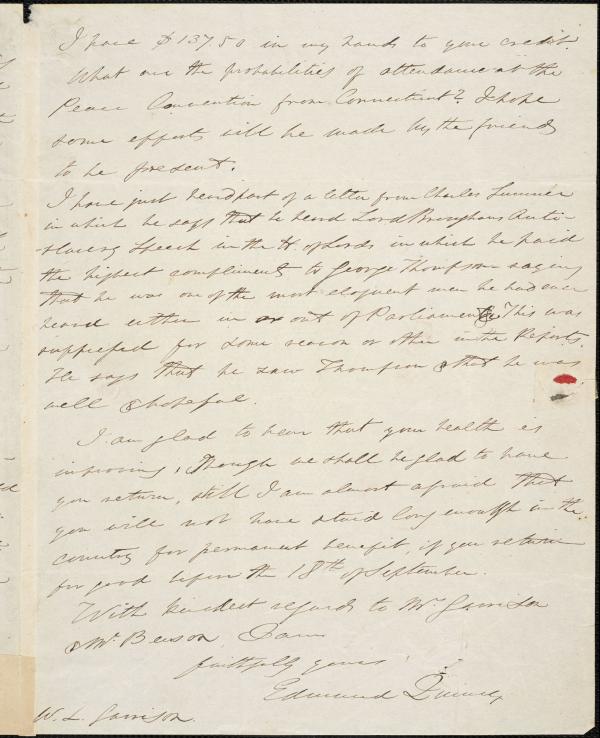 I have $137.50 in my hands to your credit.
What are the probabilities of attendance at the
Peace Convention from Connecticut? I hope
some efforts will be made by the friends
to be present.
I have just heard part of a letter from Charles Sumner
in which he says that he heard Lord Brougham's Anti-
slavery Speech in the H. of Lords in which he paid
the highest compliments to George Thompson saying
that he was one of the most eloquent men he had ever
heard either in or out of Parliament. This was
suppressed for some reason or other in the Reports.
He says that he saw Thompson & that he was
well & hopeful.
I am glad to hear that your health is
improving. Though we shall be glad to have
you return, still I am almost afraid that
you will not have staid long enough in the
country for permanent benefit, if you return
for good before the 18th of September.
With kindest regards to Mrs Garrison
& Mr Benson I am
faithfully yours
Edmund Quincy
W. L. Garrison.